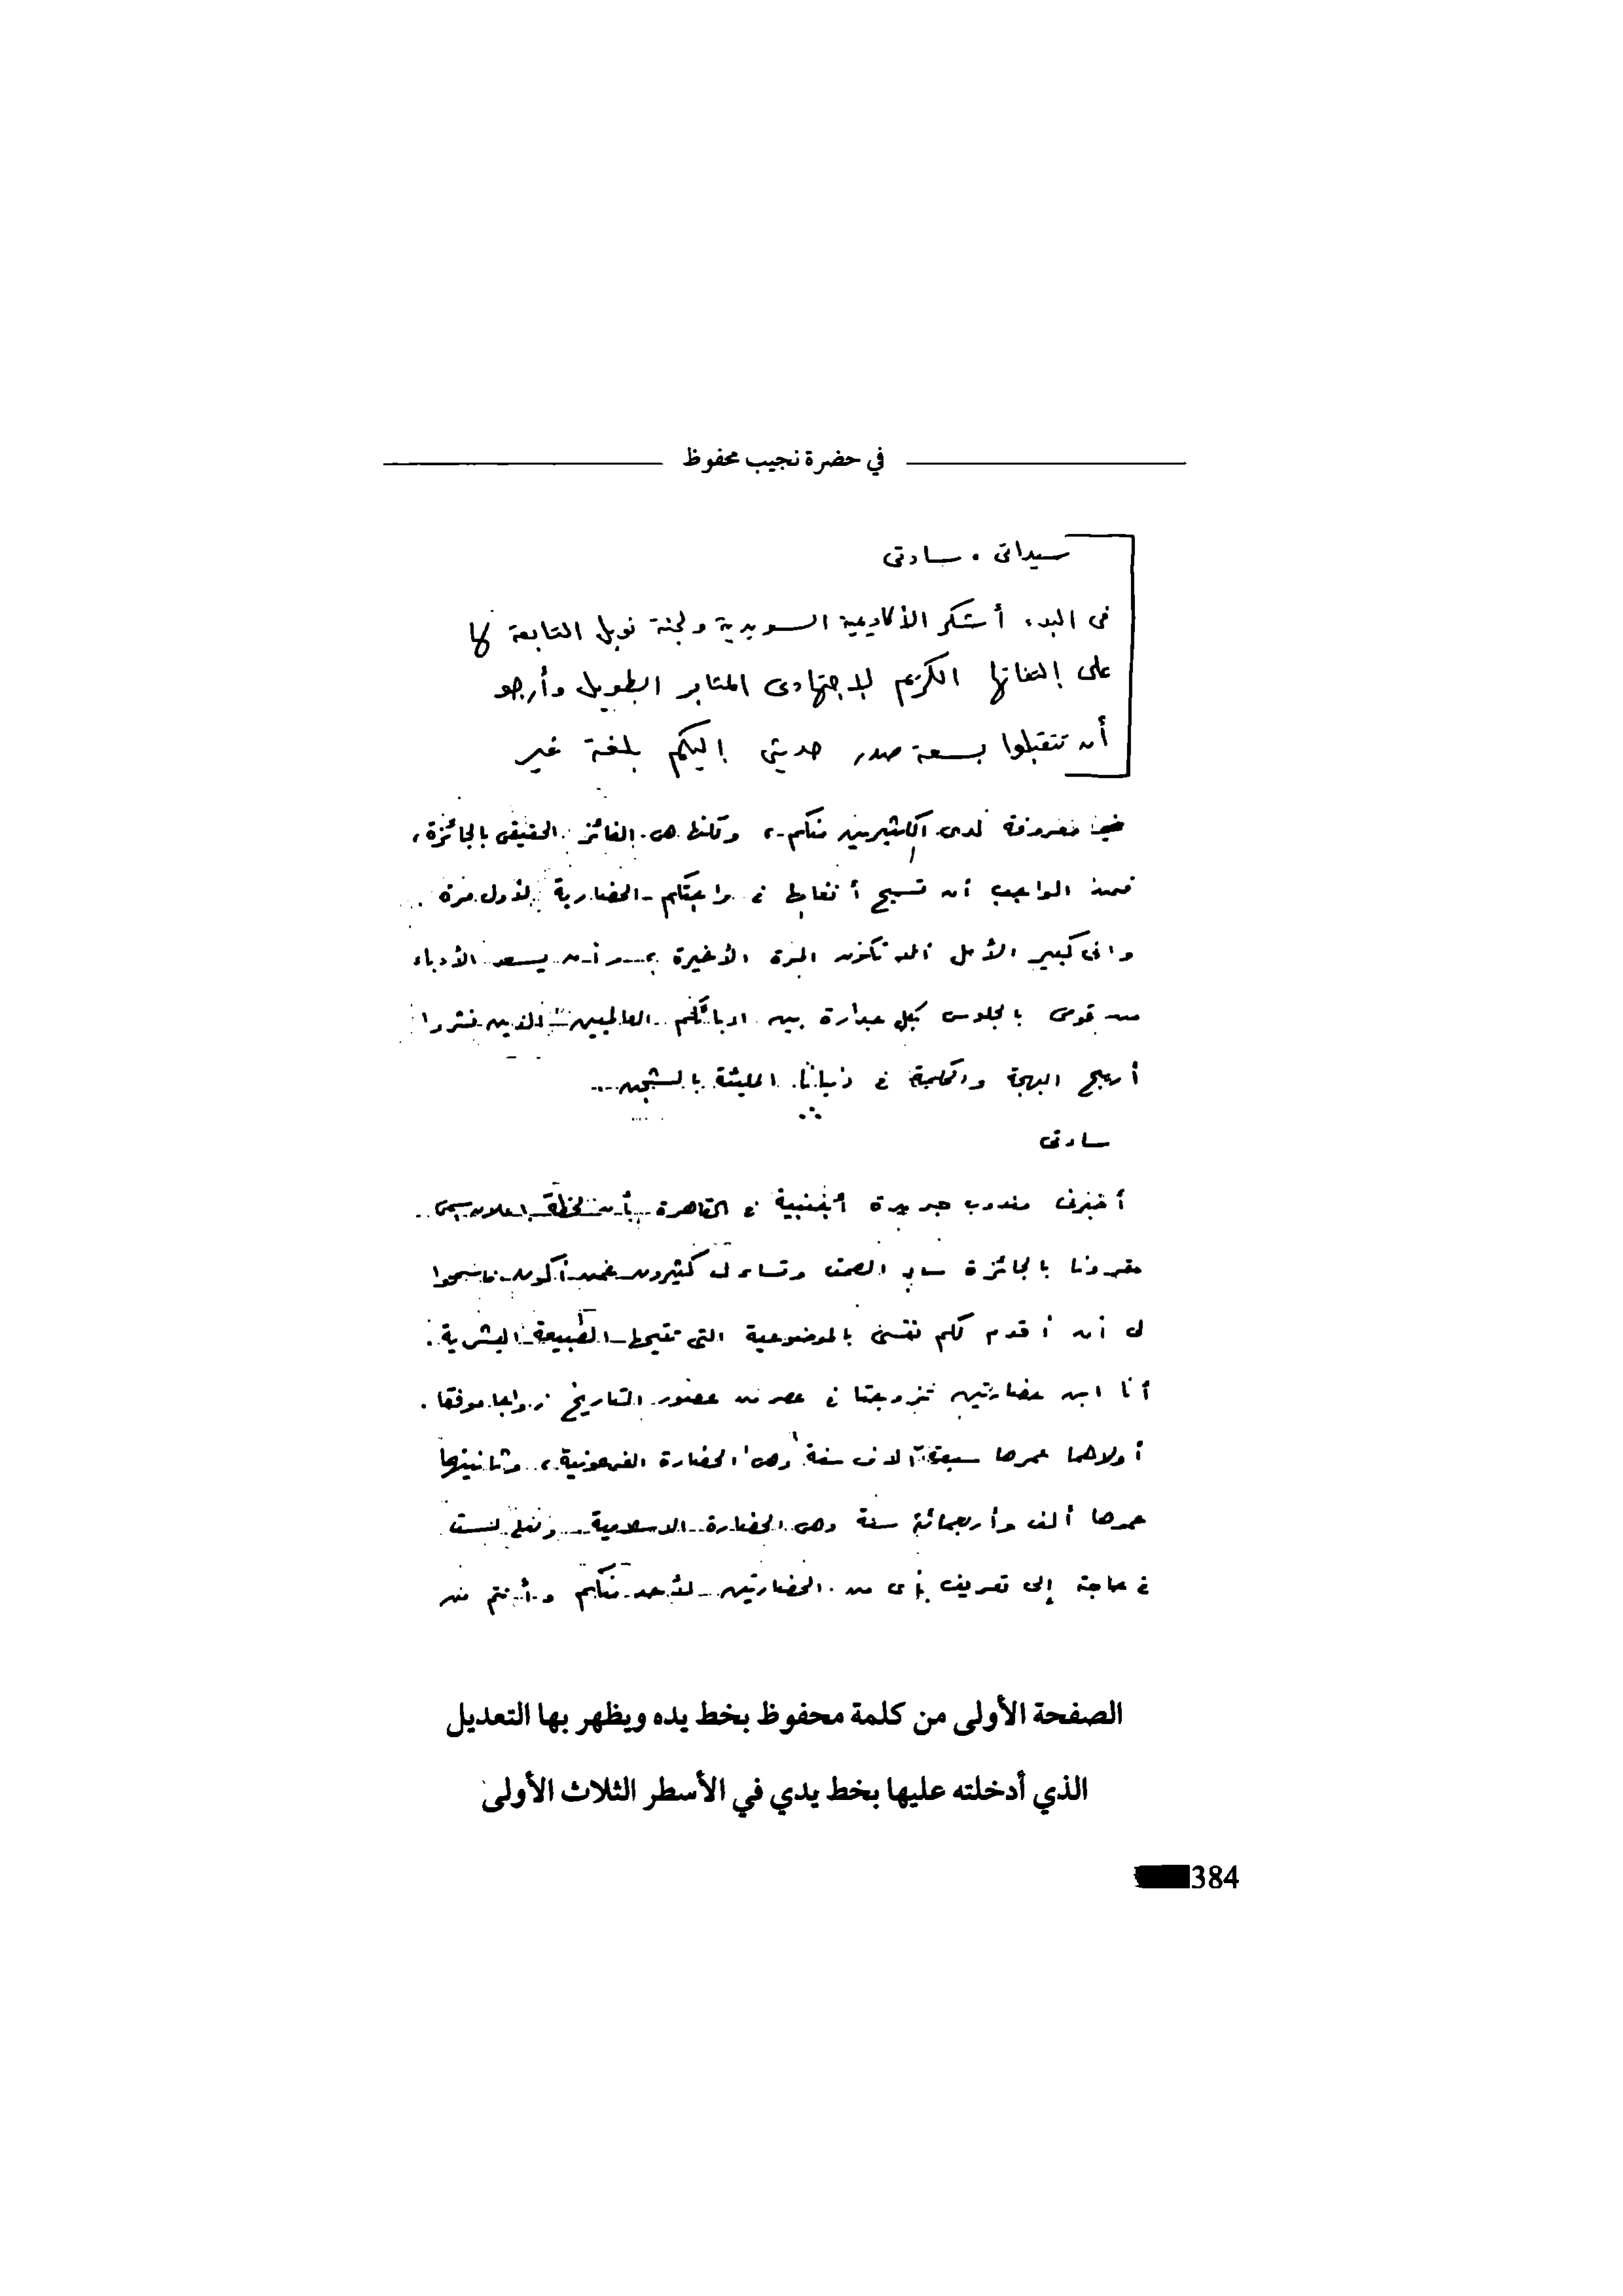 في حضرة نجيب محفوظ
سيداتى ، سادتى
فى البدء أشكر الأكاديمية السويدية ولجنة نوبل التابعة لها
على إلتفاتها الكريم لإجتهادى المثابر الطويل وأرجو
أن تتقبلوا بسعة صدر حديثى إليكم بلغة غير
معروفة لدى الكثيرين منكم ، ولكنها هى الفائز الحقيقى بالجائزة ،
فمن الواجب أن تسبح أنغامها فى واحتكم الحضارية لأول مرة .
وانى كبير الأمل ألا تكون المرة الأخيرة ، وأن يسعد الأدباء
من قومى بالجلوس بكل جدارة بين ادبائكم العالميين الذين نشروا
أريج البهجة والحكمة فى دنيانا المليئة بالشجن ..
سادتى
أخبرنى مندوب جريدة أجنبية فى القاهرة بأن لحظة اعلان اسمى
مقرونا بالجائزة ساد الصمت وتساءل كثيرون عمن أكون فاسمحوا
لى أن أقدم لكم نفسى بالموضوعية التى تتيحها الطبيعة البشرية .
أنا ابن حضارتين تزوجتا فى عصر من عصور التاريخ زواجا موفقا .
أولاهما عمرها سبعة آلاف سنة وهى الحضارة الفرعونية ، وثانيتها
عمرها ألف وأربعمائة سنة وهى الحضارة الاسلامية ولعلى لست
فى حاجة إلى تعريف بأى من الحضارتين لأحد منكم وأنتم من
الصفحة الأولى من كلمة محفوظ بخط يده ويظهر بها التعديل
الذي أدخلته عليها بخط يدي في الأسطر الثلاث الأولى
384